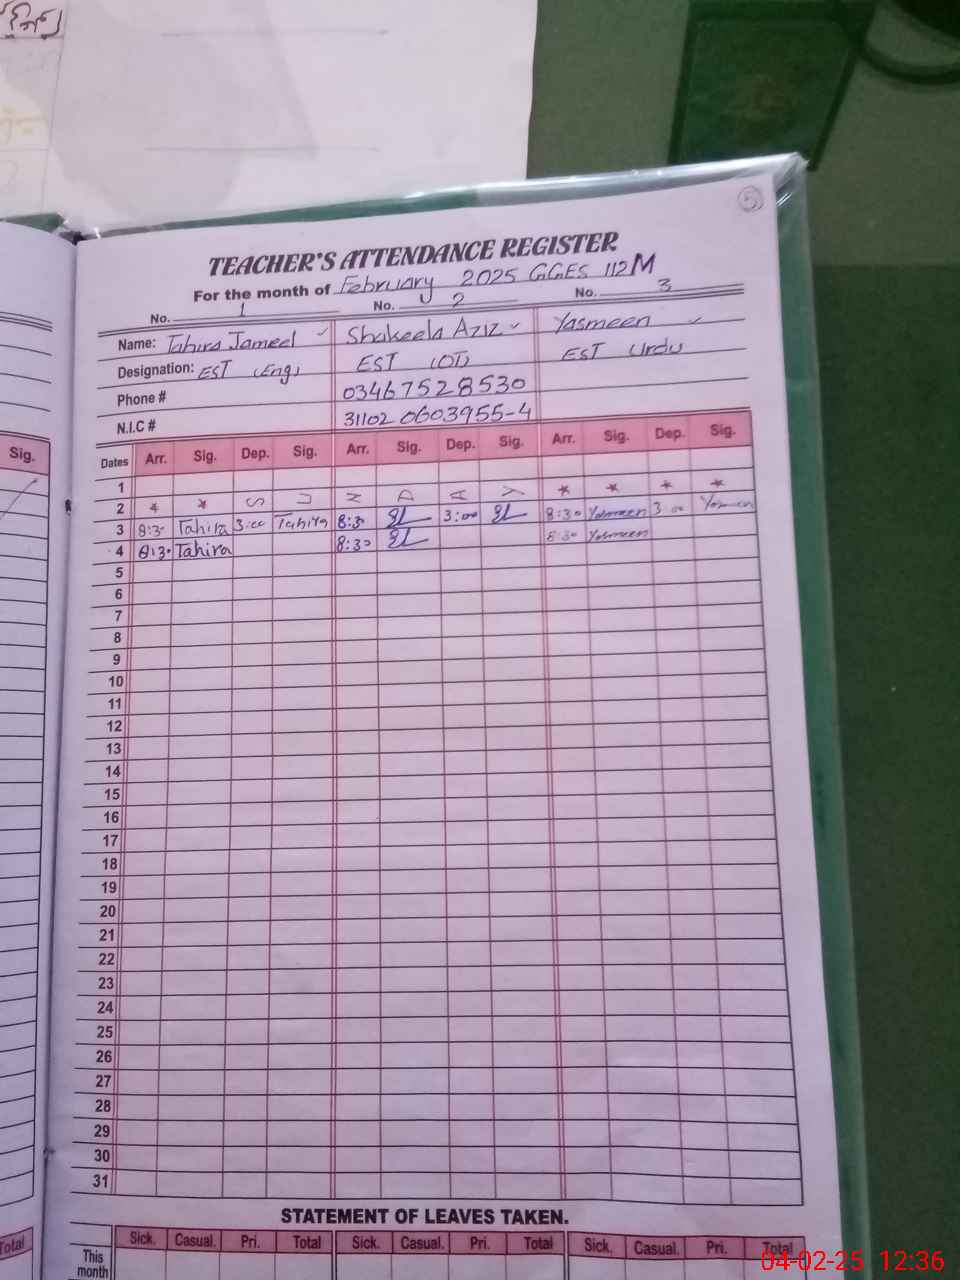 5
TEACHER'S ATTENDANCE REGISTER
For the month of February 2025 GGES 112M
No. 1 No. 2 No. 3
Name: Tahira Jameel Shakeela Aziz Yasmeen
Designation: EST (Eng) EST (OT) EST Urdu
Phone # 03467528530
N.I.C # 31102 0603955-4
Sig. Dates Arr. Sig. Dep. Sig. Arr. Sig. Dep. Sig. Arr. Sig. Dep. Sig.
1
2 * * S U N D A Y * * * *
3 8:30 Tahira 3:00 Tahira 8:30 3:00 8:30 Yasmeen 3:00 Yasmeen
4 8:30 Tahira 8:30 8:30 Yasmeen
5
6
7
8
9
10
11
12
13
14
15
16
17
18
19
20
21
22
23
24
25
26
27
28
29
30
31
STATEMENT OF LEAVES TAKEN.
Total This month Sick. Casual. Pri. Total Sick. Casual. Pri. Total Sick. Casual. Pri. Total
04-02-25 12:36